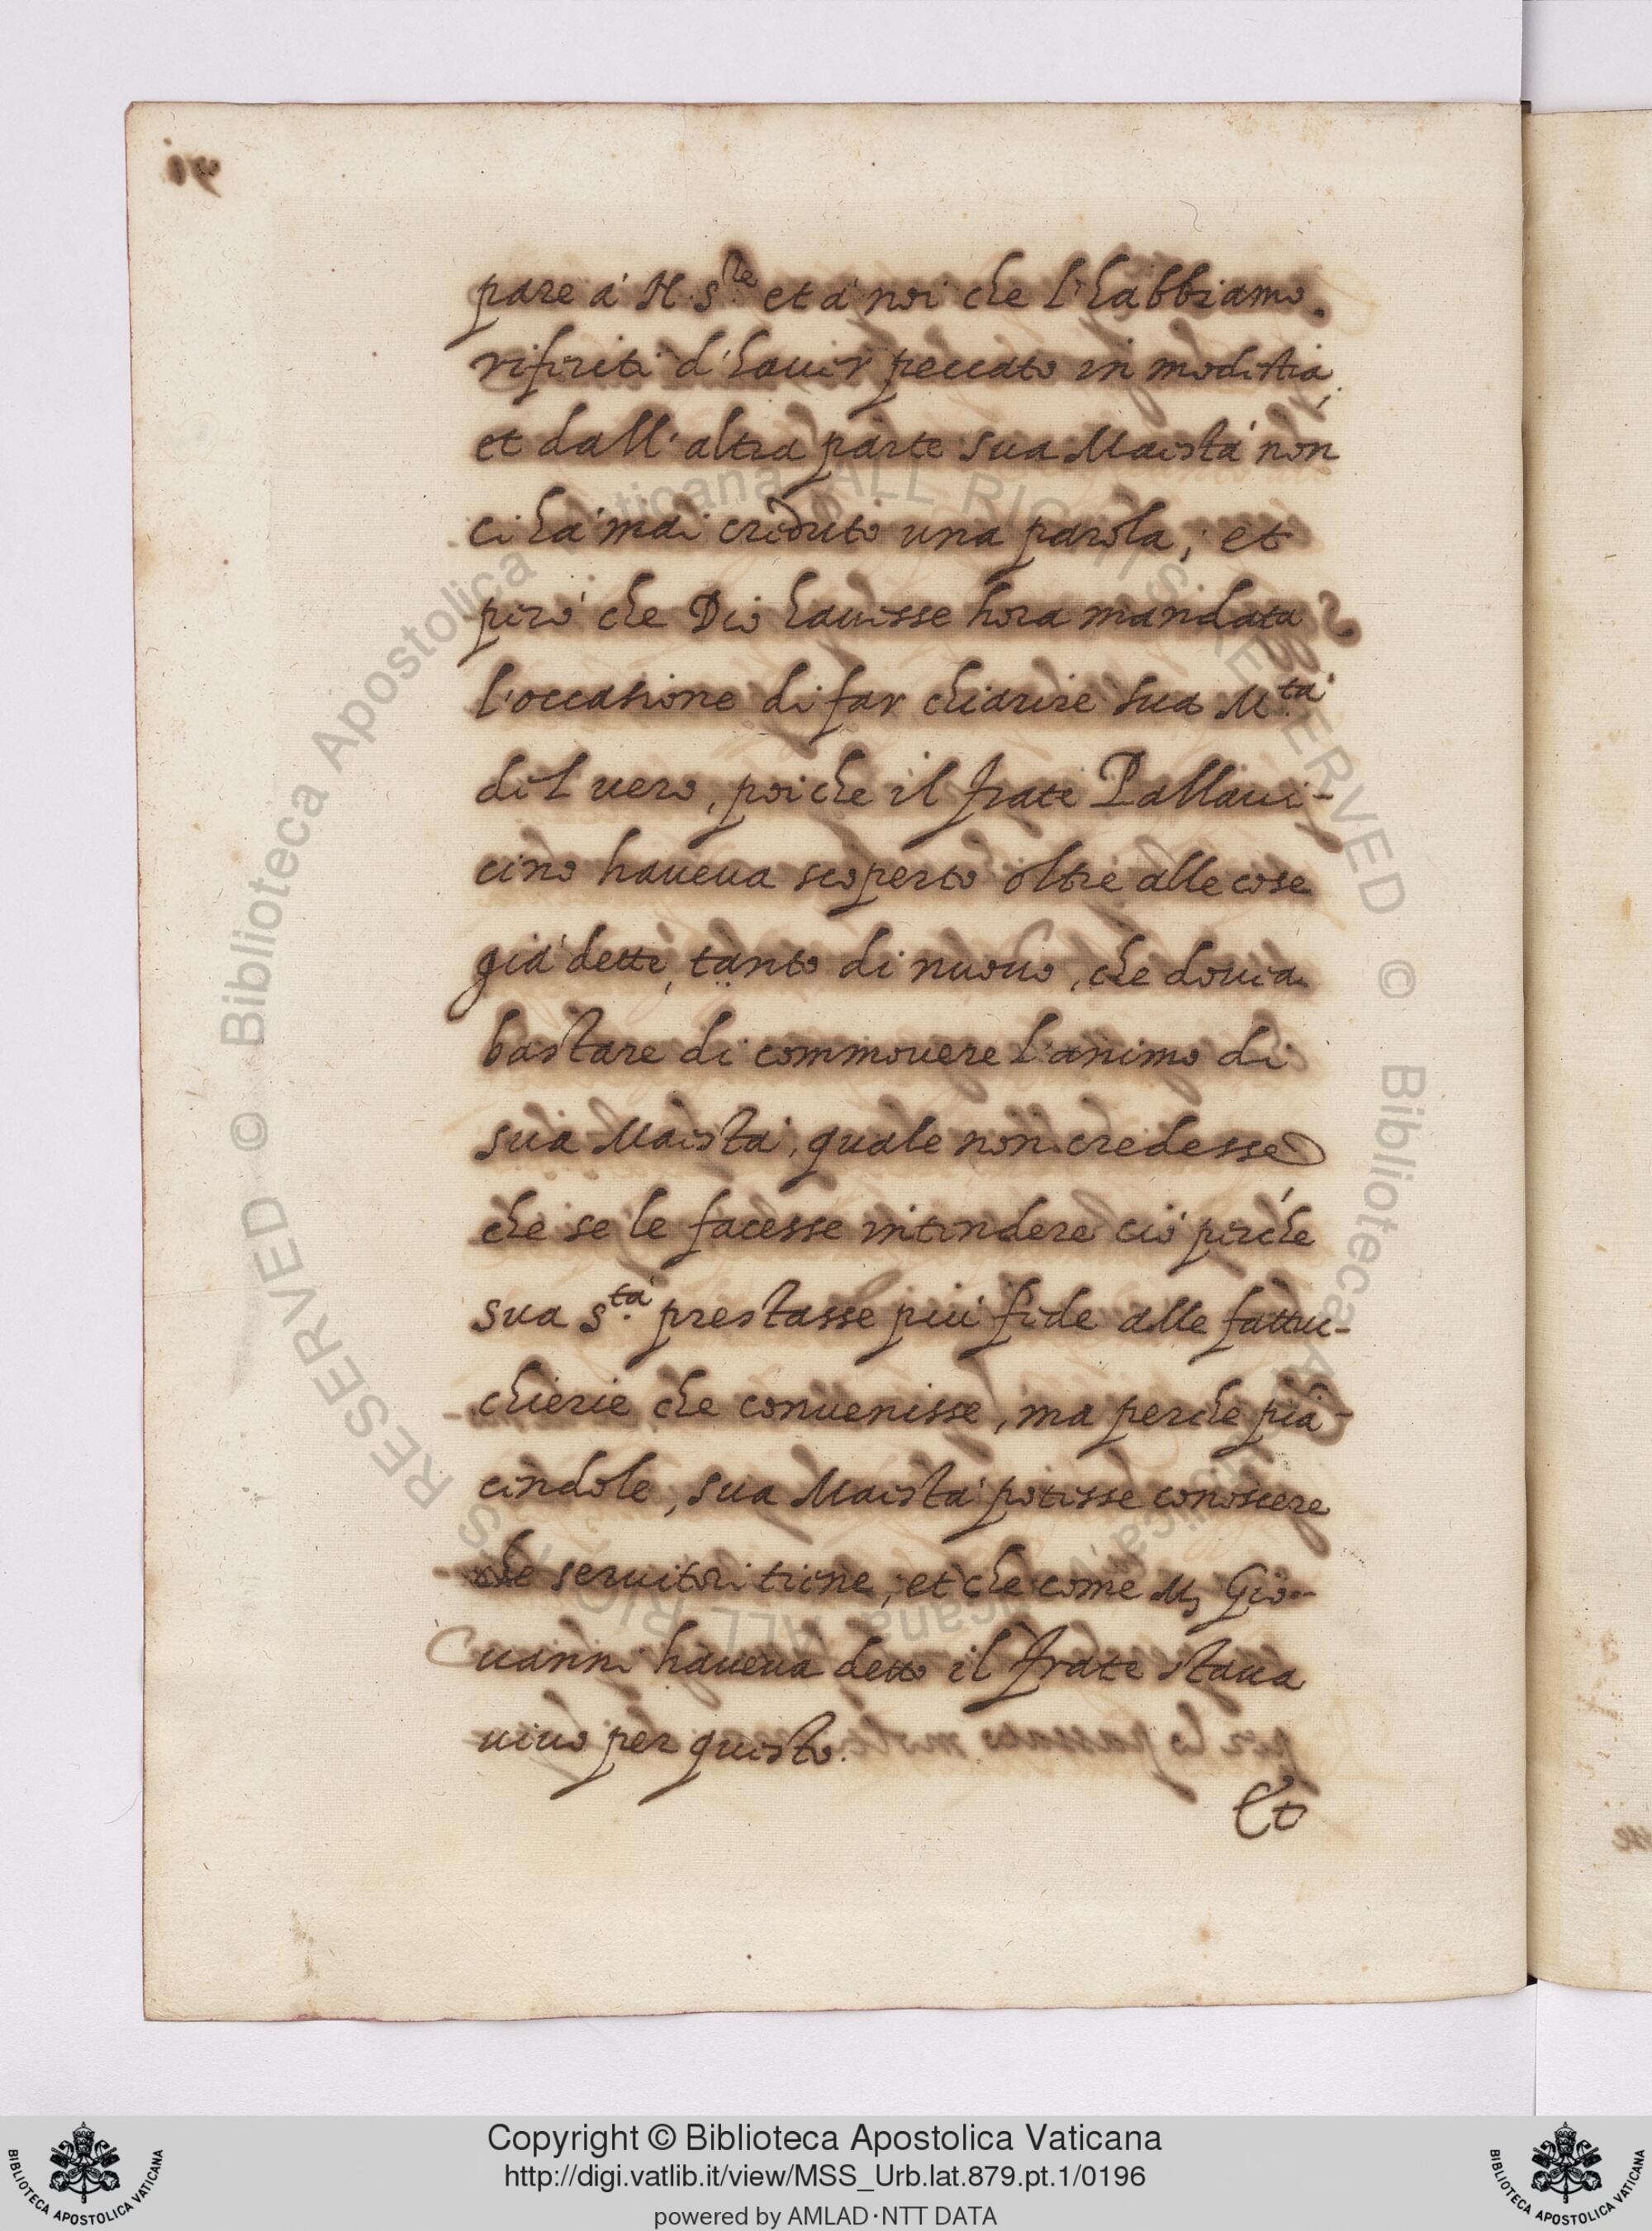 pare á N. S.re et á noi che l'habbiamo
riferite d'hauer peccato in modestia;
et dall'altra parte sua Maestá non
ci há mai creduto una parola; et
peró che Dio hauesse hora mandata
l'occasione di far chiarire sua M.tá
del uero, poiche il frate Pallaui-
cino haueua scoperto oltre alle cose
giá dette, tanto di nuouo, che douea
bastare di commouere l'animo di
sua Maestá, quale non credesse
che se le facesse intendere ció perche
sua S.tá prestasse piú fede alle fattuc-
chierie che conuenisse, ma perche pia-
cendole, sua Maestá potesse conoscere
che seruitori tiene, et che come M. Gio-
uanni haueua detto il frate staua
uiuo per questo.
Et
Copyright © Biblioteca Apostolica Vaticana
http://digi.vatlib.it/view/MSS_Urb.lat.879.pt.1/0196
powered by AMLAD·NTT DATA
BIBLIOTECA APOSTOLICA VATICANA
BIBLIOTECA APOSTOLICA VATICANA